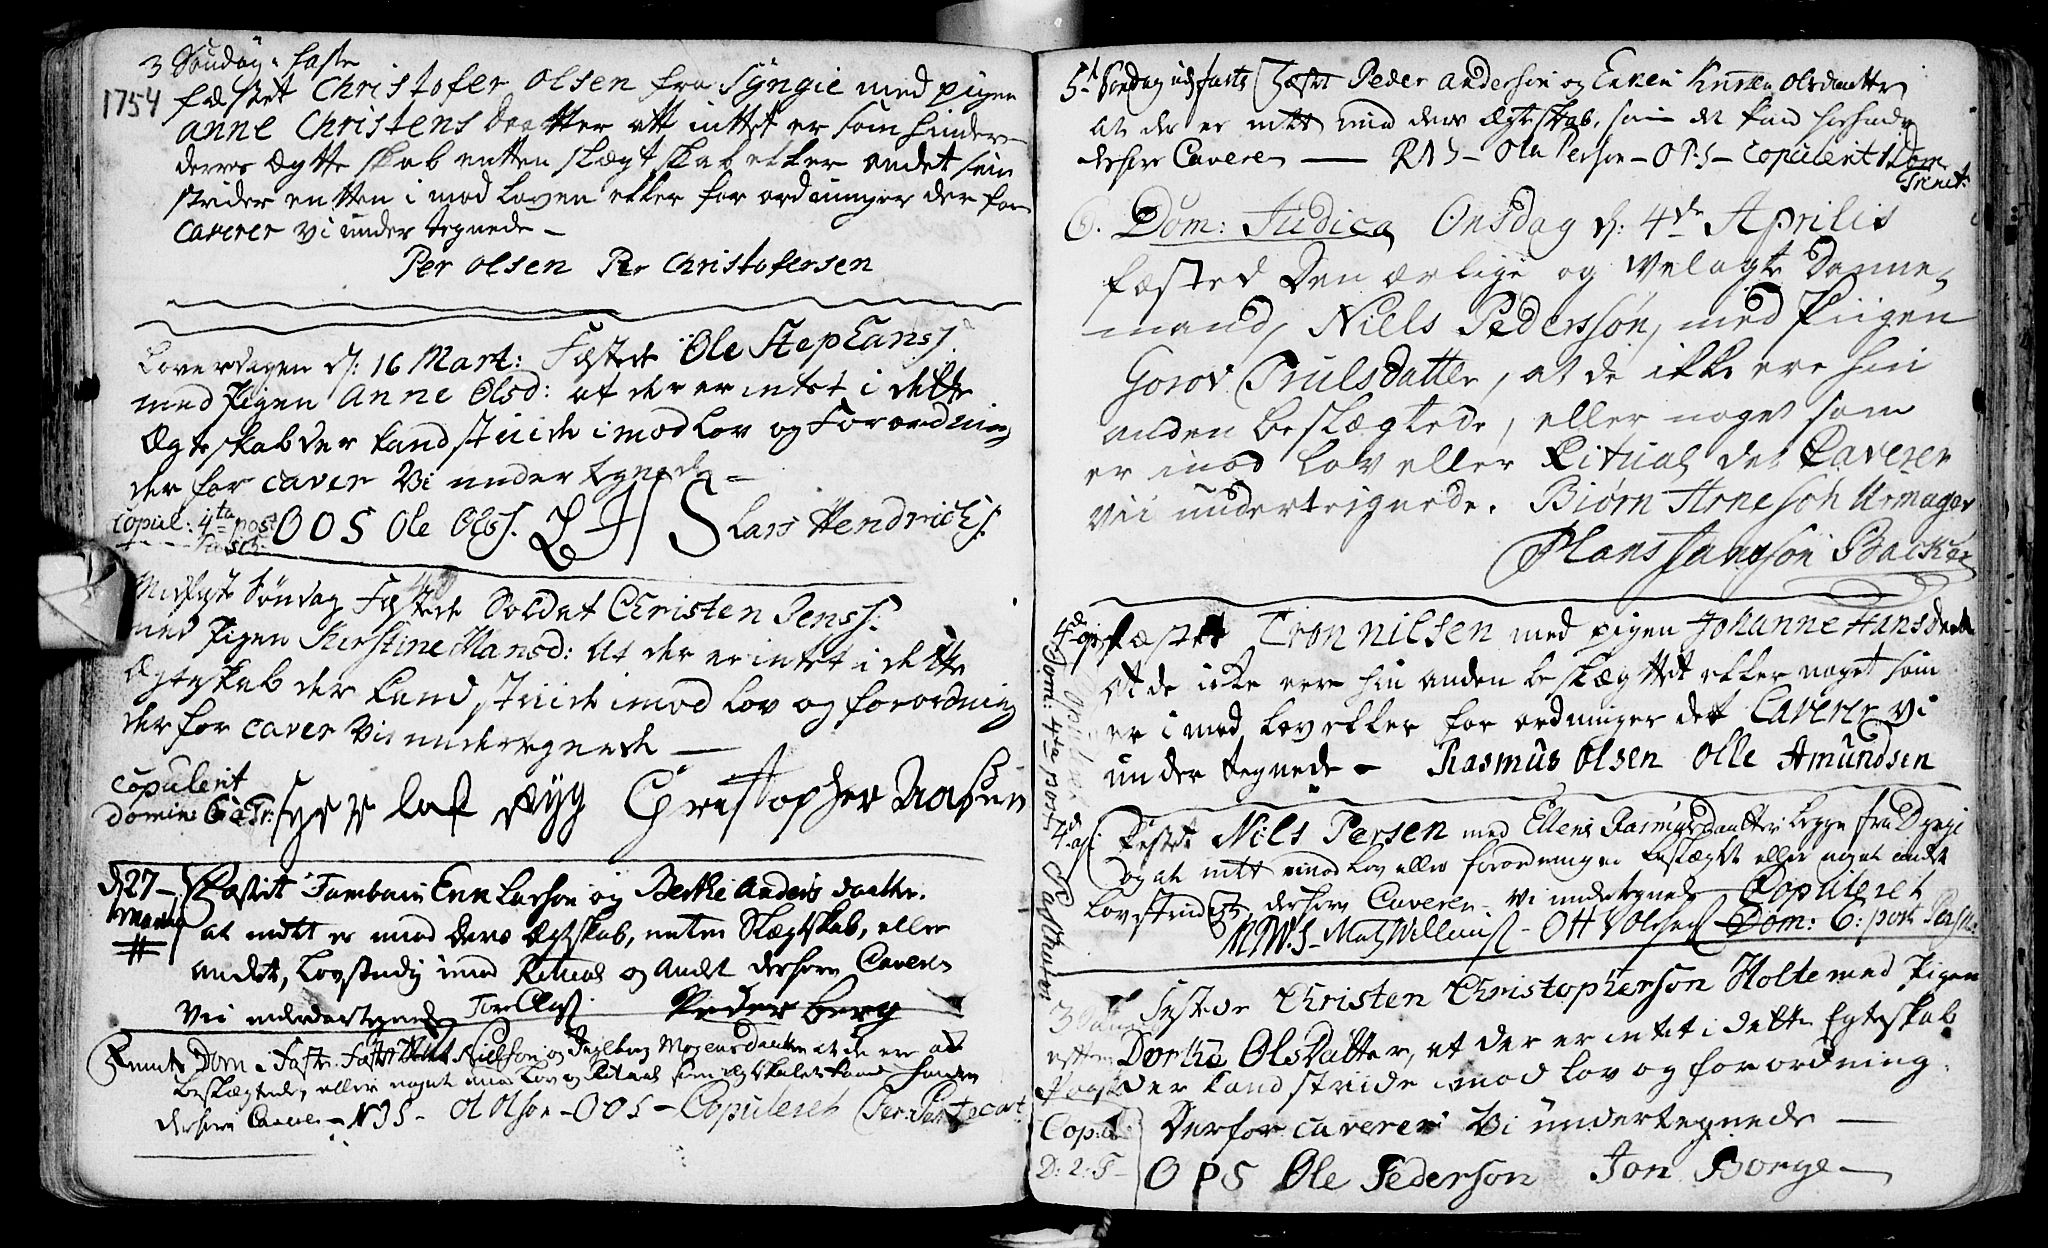 3 Søndag i faste
1754
fæstet Christofer Olsen fra Syngie med pigen
anne Christens daatter att inttet er som hinder
deres Ægtte skab entten slægt skab eller andet som
strider entten i mod loven eller for ordninger der for
Caverer vi under tegnede –
Per Olsen Per Christofersen
Løverdagen d: 16 Mart: Fæstede Ole Stephans:
med Pigen Anne Olsd: at der er intet i dette
Ægteskab der kand stride imod Lov og Forordning
der for caver Vi undertegnede –
Copul: 4ta post Pasch:
OOS Ole Ols: LHS Lars Hendrichs:
Midfaste Søndag Fæstede Soldat Christen Jens:
med Pigen Kirstine Hansd: At der er intet i dette
Ægteskab der kand stride imod lov og forordning
der for caver Vi undertegnede —
Copulerit
Domin: 6 a Tr:
Christopher
d 27 – Fæstet Tambour Enn Larson og Berthe Anders daatter.
at intet er imod deres Ægteskab, enten Slægtskab, eller
andet, Lovstridig imod Ritual og Andet derfore Cavere
Vii underteignede Peder Berg
Dom i Faste Nielson og Ingeborg Mogensdaatter at de ere ei
beslægtede, eller noget imod Lov og Ritual som Ægteskabet kand hindre
derfore Cavere – NIS – Ol Olson – OOS – Copuleret
5t Søndag udj faste Fæstet Peder Anderson og Enken Kirsten Olsdaatter
At der er intet imod deres Ægteskab, som det kand forhindre
derfore Cavere — RNS – Ola Person – OPS – Copulerit 1 Dom
Trinit:
6. Dom: Judica Onsdag d: 4de Aprilis
fæsted Den ærlige og Velagte Danne-
mand, Niels Pedersøn, med Piigen
Gorov Trulsdatter, at de ikke ere hin
anden beslægtede, eller noget som
er imod Lov eller Ritual det Caverer
vii underteignede. Biørn Arnesøn Urmager
Hans Jansøn Backe
4d apr: fæstet Tron nilsen med pigen Johanne Hansdaater
at de icke ere hin anden beslægttet eller noget som
er i mod lov eller for ordninger dett Caverer vi
under tegnede – Rasmus Olsen Olle Amundsen
Copuleret Dom: 4ta post Pascha
4d ap: Festet Nils Persen med Ellene Rasmusdaatter begge fra
og at intet imod lov eller forordninger beslægtet eller noget andet
Lovstridigt derfore Cavere – vi undertegnede – Copuleret
MWS – Mats Willums: – Ott Olsen Dom: 6: post Pasch:
3 Dag efter Paasche
Fæstede Christen Christopherson Holte med Pigen
Dorthe Olsdatter, at der er intet i dette Egteskab
der kand stride imod Lov og forordning.
Derfor caverer Vi undertegnede —
Copul: D: 2: T –
OPS Ole Pederson Jon Borge –